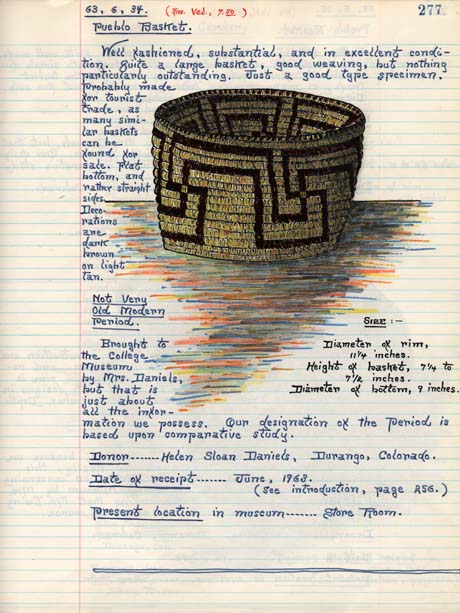 63. 6. 34. (Inv. Val., 7.50)
277
Pueblo Basket.
Well fashioned, substantial, and in excellent condi-
tion. Quite a large basket, good weaving, but nothing
particularly outstanding. Just a good type specimen.
Probably made
for tourist
trade, as
many simi-
lar baskets
can be
found for
sale. Flat
bottom, and
rather straight
sides.
Deco-
rations
are
dark
brown
on light
tan.
Not Very
Old Modern
Period.
Brought to
the College
Museum
by Mrs. Daniels,
but that is
just about
all the infor-
mation we possess. Our designation of the period is
based upon comparative study.
Size :-
Diameter of rim,
11¼ inches.
Height of basket, 7¼ to
7½ inches.
Diameter of bottom, 9 inches.
Donor------- Helen Sloan Daniels, Durango, Colorado.
Date of receipt------- June, 1963.
(See introduction, page 256.)
Present location in museum------- Store Room.